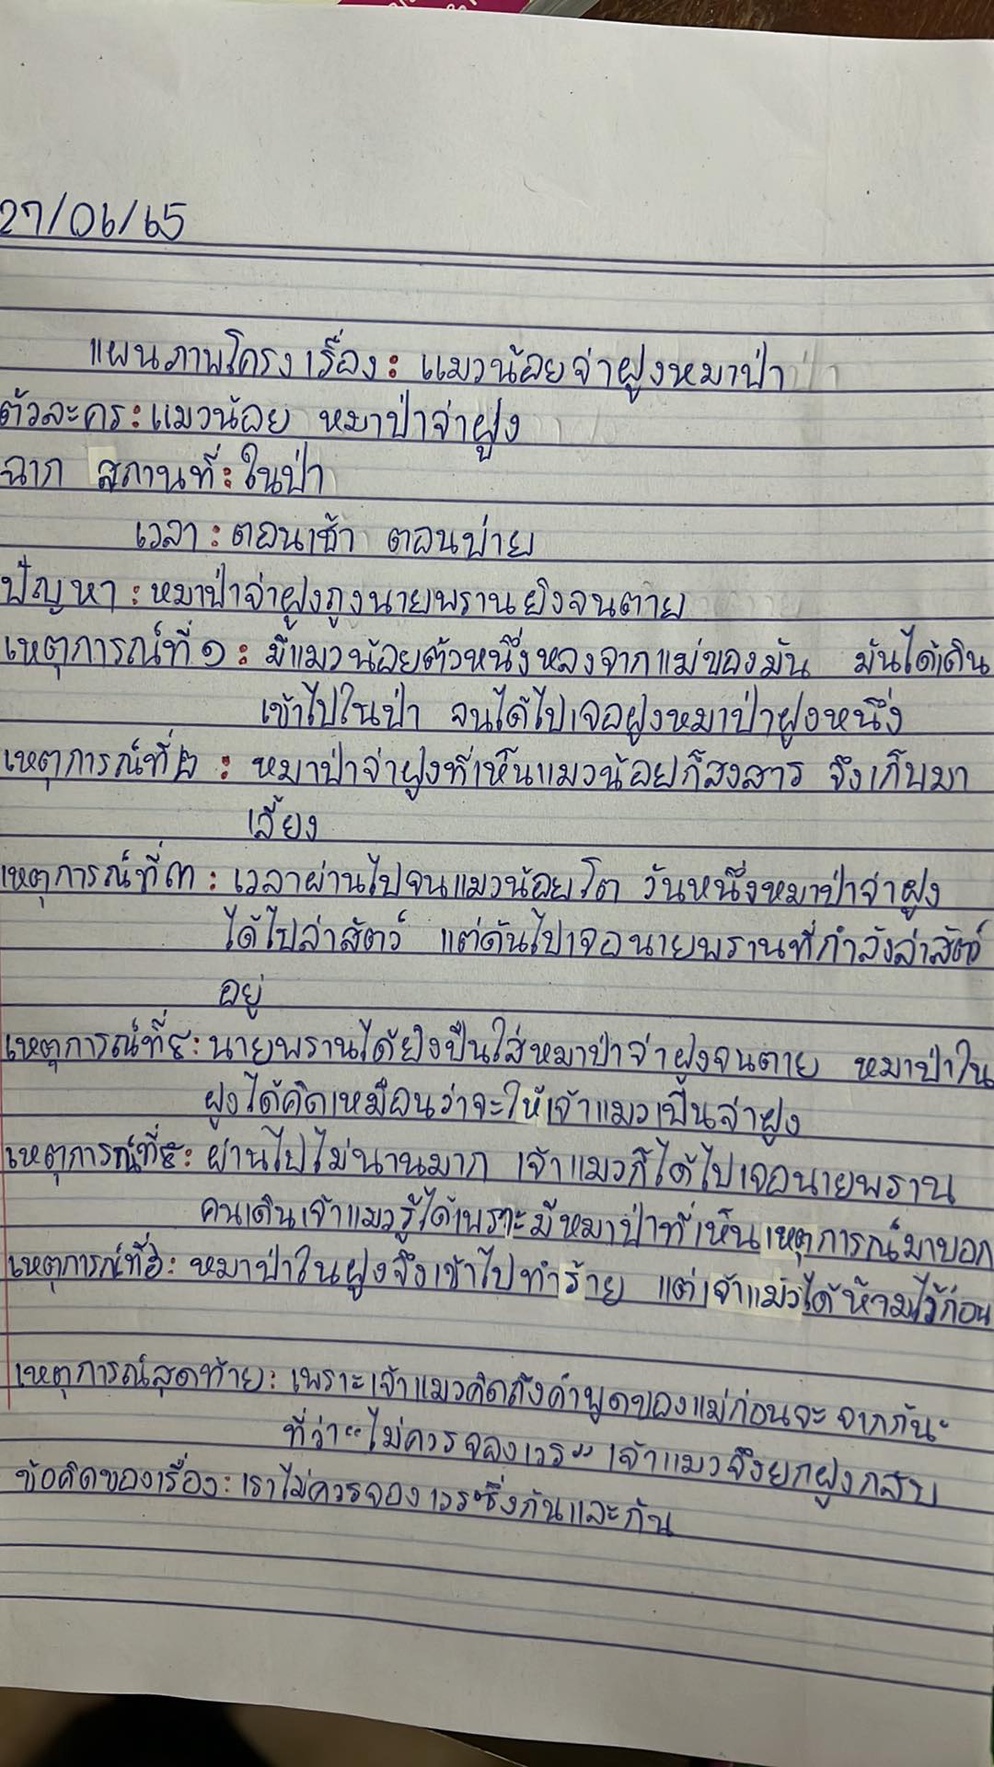 27/06/65
แผนภาพโครงเรื่อง: แมวน้อยจ่าฝูงหมาป่า
ตัวละคร: แมวน้อย หมาป่าจ่าฝูง
ฉาก สถานที่: ในป่า
เวลา: ตอนเช้า ตอนบ่าย
ปัญหา: หมาป่าจ่าฝูงถูงนายพรานยิงจนตาย
เหตุการณ์ที่ ๑: มีแมวน้อยตัวหนึ่งหลงจากแม่ของมัน มันได้เดิน
เข้าไปในป่า จนได้ไปเจอฝูงหมาป่าฝูงหนึ่ง
เหตุการณ์ที่ ๒: หมาป่าจ่าฝูงที่เห็นแมวน้อยก็สงสาร จึงเก็บมา
เลี้ยง
เหตุการณ์ที่ ๓: เวลาผ่านไปจนแมวน้อยโต วันหนึ่งหมาป่าจ่าฝูง
ได้ไปล่าสัตว์ แต่ดันไปเจอนายพรานที่กำลังล่าสัตว์
อยู่
เหตุการณ์ที่ ๔: นายพรานได้ยิงปืนใส่หมาป่าจ่าฝูงจนตาย หมาป่าใน
ฝูงได้คิดเหมือนว่าจะให้เจ้าแมวเป็นจ่าฝูง
เหตุการณ์ที่ ๕: ผ่านไปไม่นานมาก เจ้าแมวก็ได้ไปเจอนายพราน
คนเดิมเจ้าแมวรู้ได้เพราะมีหมาป่าที่เห็นเหตุการณ์มาบอก
เหตุการณ์ที่ ๖: หมาป่าในฝูงจึงเข้าไปทำร้าย แต่เจ้าแมวได้ห้ามไว้ก่อน
เหตุการณ์สุดท้าย: เพราะเจ้าแมวคิดถึงคำพูดของแม่ก่อนจะ จากกันะ
ที่ว่า "ไม่ควรจองเวร" เจ้าแมวจึงยกฝูงกลับ
ข้อคิดของเรื่อง: เราไม่ควรจองเวรซึ่งกันและกัน